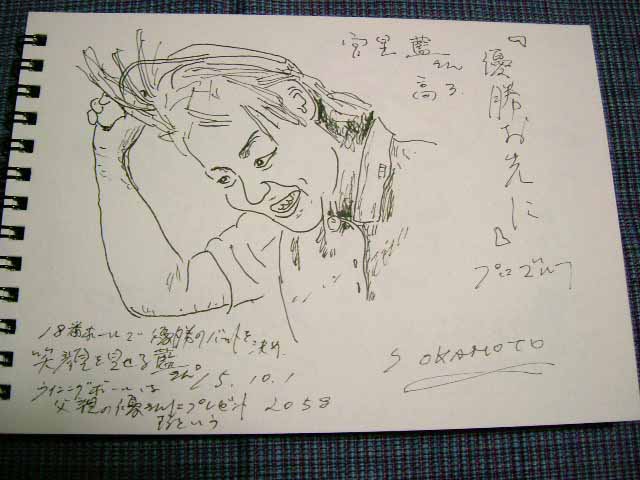 『優勝お先に』
プロゴルフ
宮里 藍さん
高3.
S OKAMOTO
18番ホールで優勝のパットを決め
笑顔を見せる藍さん。 15.10.1
ウイニングボールは
父親の優さんにプレゼント 2058
するという